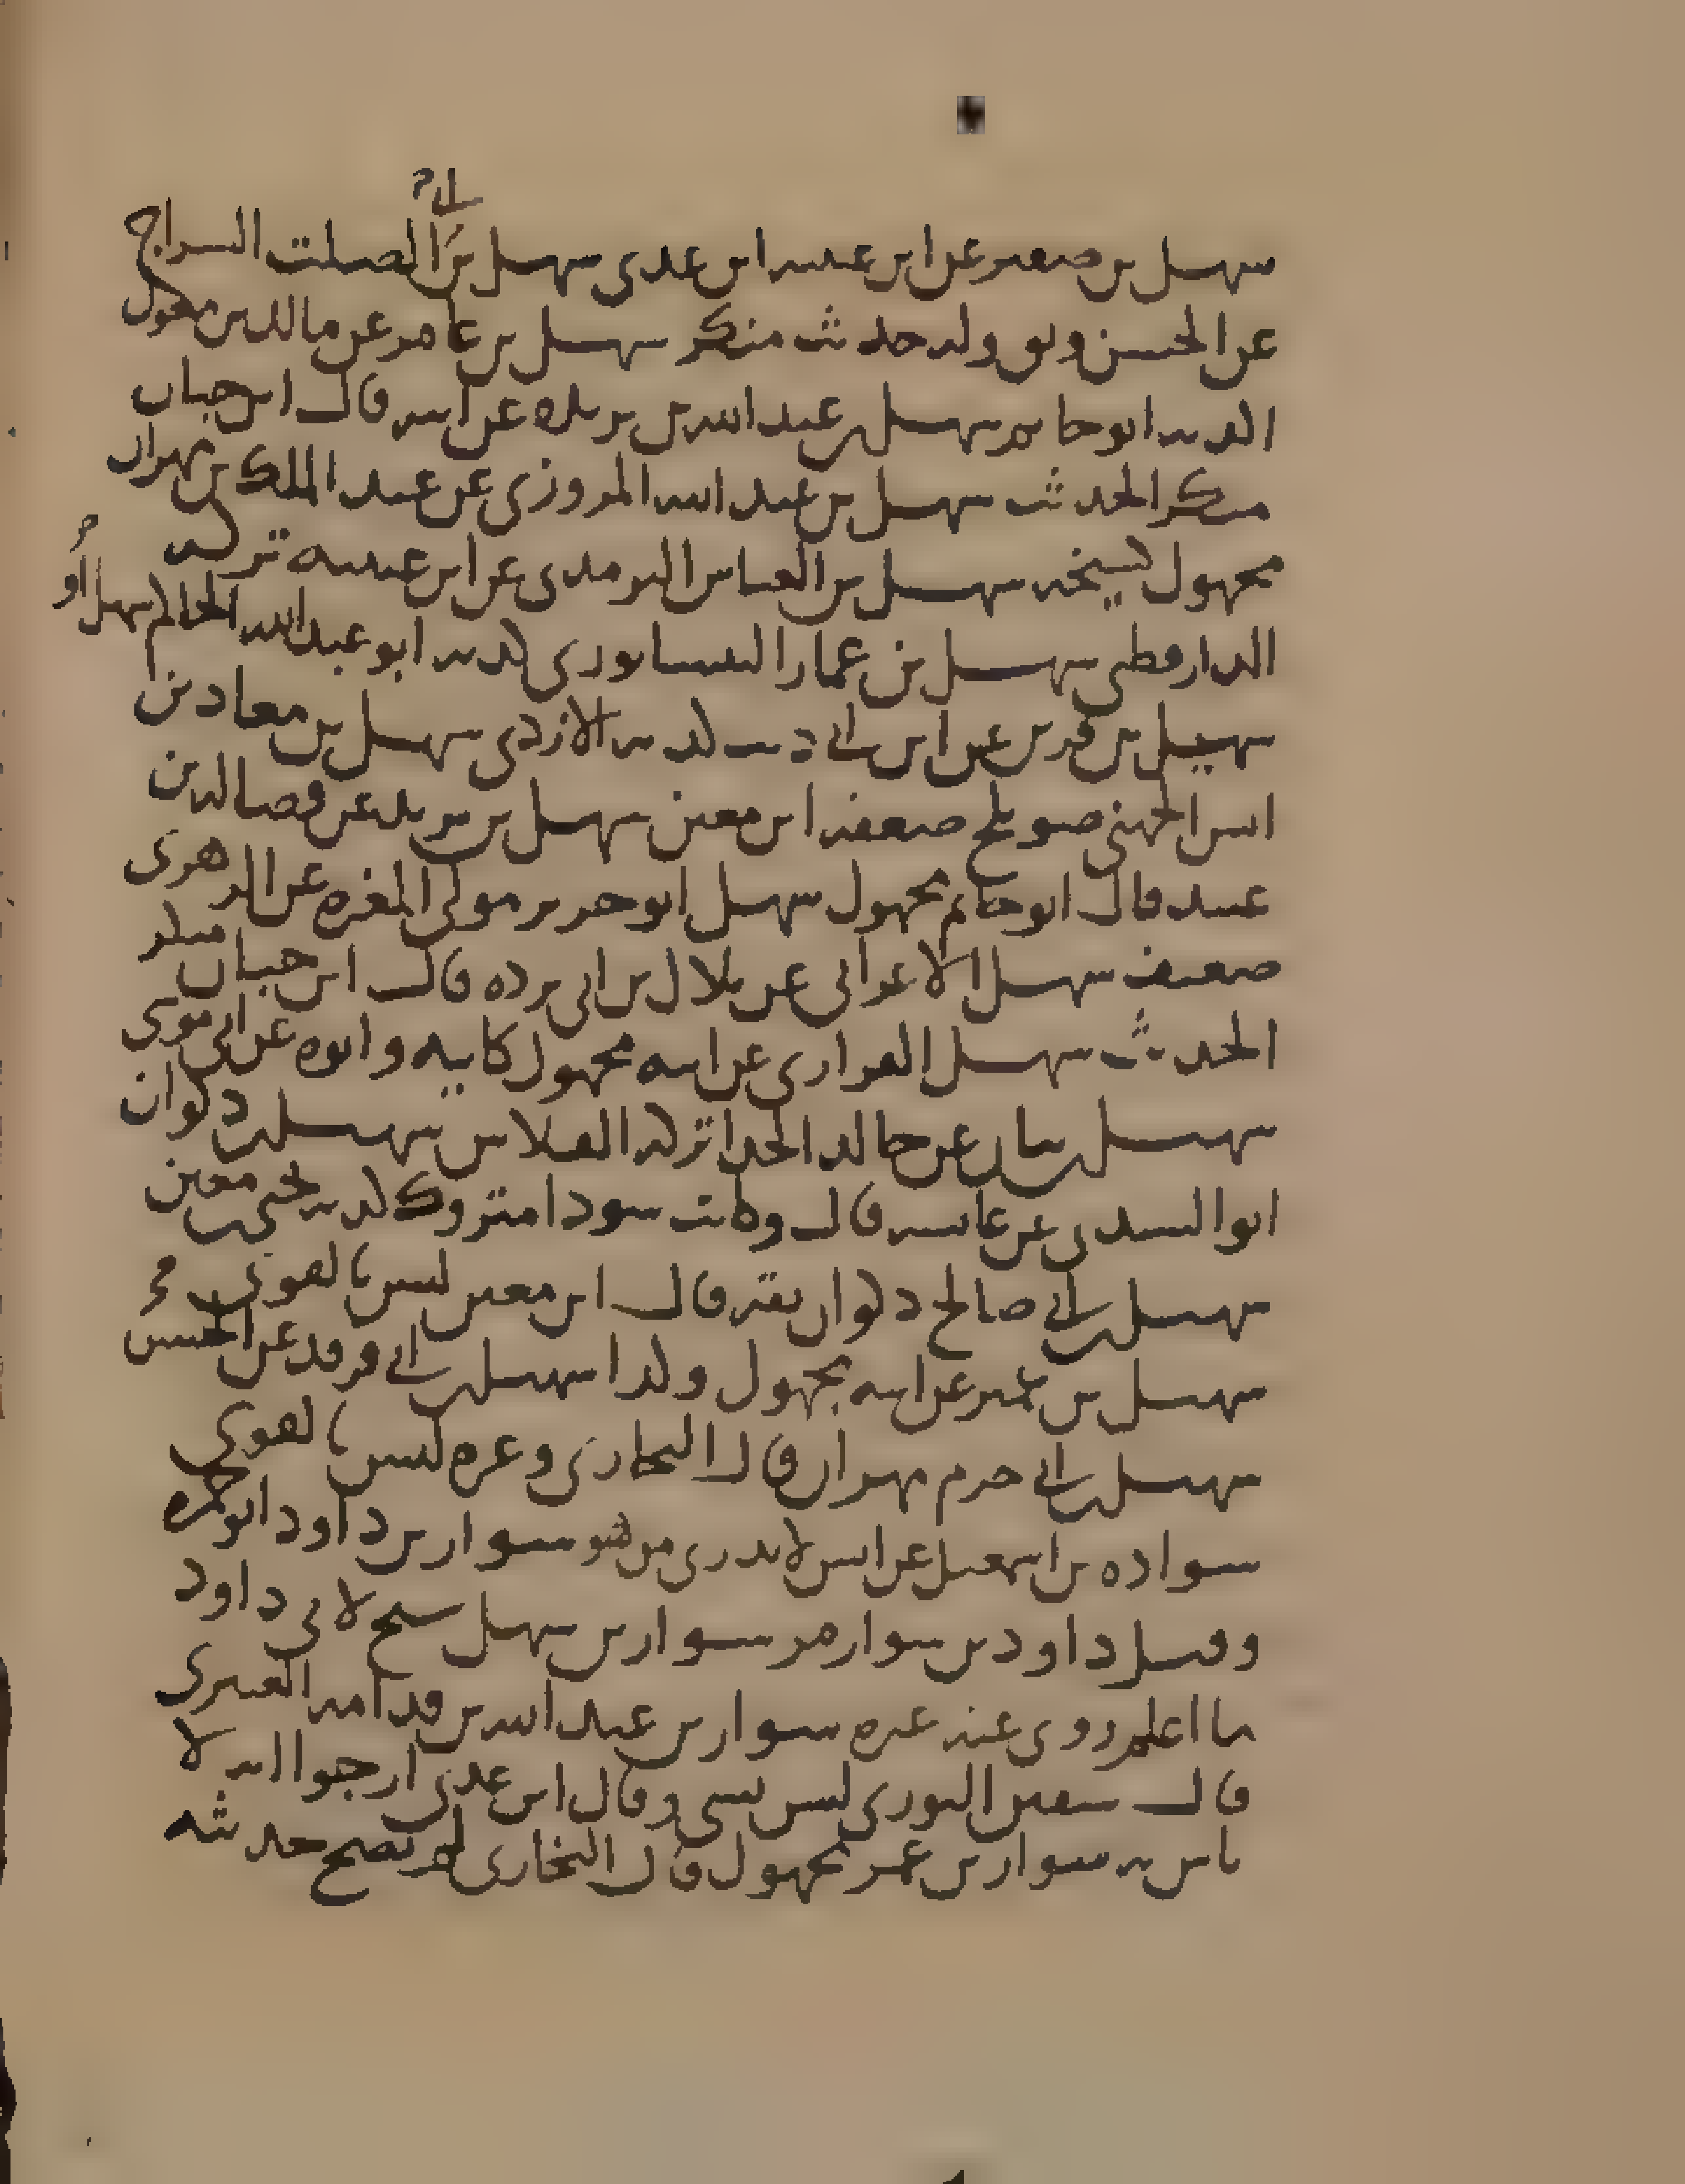 سهل بن صغير عن ابن عيينه ابن عدى سهل بن ابى الصلت السراج
عن الحسن وثق وله حديث منكر سهل بن عامر عن مالك بن مغول
كذبه ابو حاتم سهل بن عبد الله بن بريده عن ابيه قال ابن حبان
منكر الحديث سهل بن عبد الله المروزى عن عبد الملك بن مهران
مجهول كشيخه سهل بن العباس الترمذى عن ابن عيينه تركه
الدارقطنى سهل بن عمار النيسابورى كذبه ابو عبد الله الحاكم سهل او
سهيل بن قرين عن ابن ابى ذيب كذبه الازدى سهل بن معاذ بن
انس الجهنى صويلح ضعفه ابن معين سهل بن يزيد عن فضاله بن
عبيد قال ابو حاتم مجهول سهل ابو حريز مولى المغيره عن الزهرى
ضعيف سهل الاعرابى عن بلال بن ابى برده قال ابن حبان منكر
الحديث سهل الفزارى عن ابيه مجهول كابيه وابوه عن ابى موسى
سهيل بن بيان عن خالد الحذا تركه الفلاس سهيل بن ذكوان
ابو السندى عن عايشه قال وكانت سودا متروك كذبه يحيى بن معين
سهيل بن ابى صالح ذكوان ثقه قال ابن معين ليس بالقوى
سهيل بن عمير عن ابيه مجهول وكذا سهيل بن ابى فرقد عن الحسن
سهيل بن ابى حزم مهران قال البخارى وغيره ليس بالقوى
سواده بن اسمعيل عن انس لا يدرى من هو سوار بن داود ابو حمزه
وقيل داود بن سوار مر سوار بن سهل شيخ لابى داود
ما اعلم روى عنه غيره سوار بن عبد الله بن قدامه العنبرى
قال سفين الثورى ليس بشى وقال ابن عدى ارجوا انه لا
باس به سوار بن عمر مجهول قال البخارى لم يصح حديثه